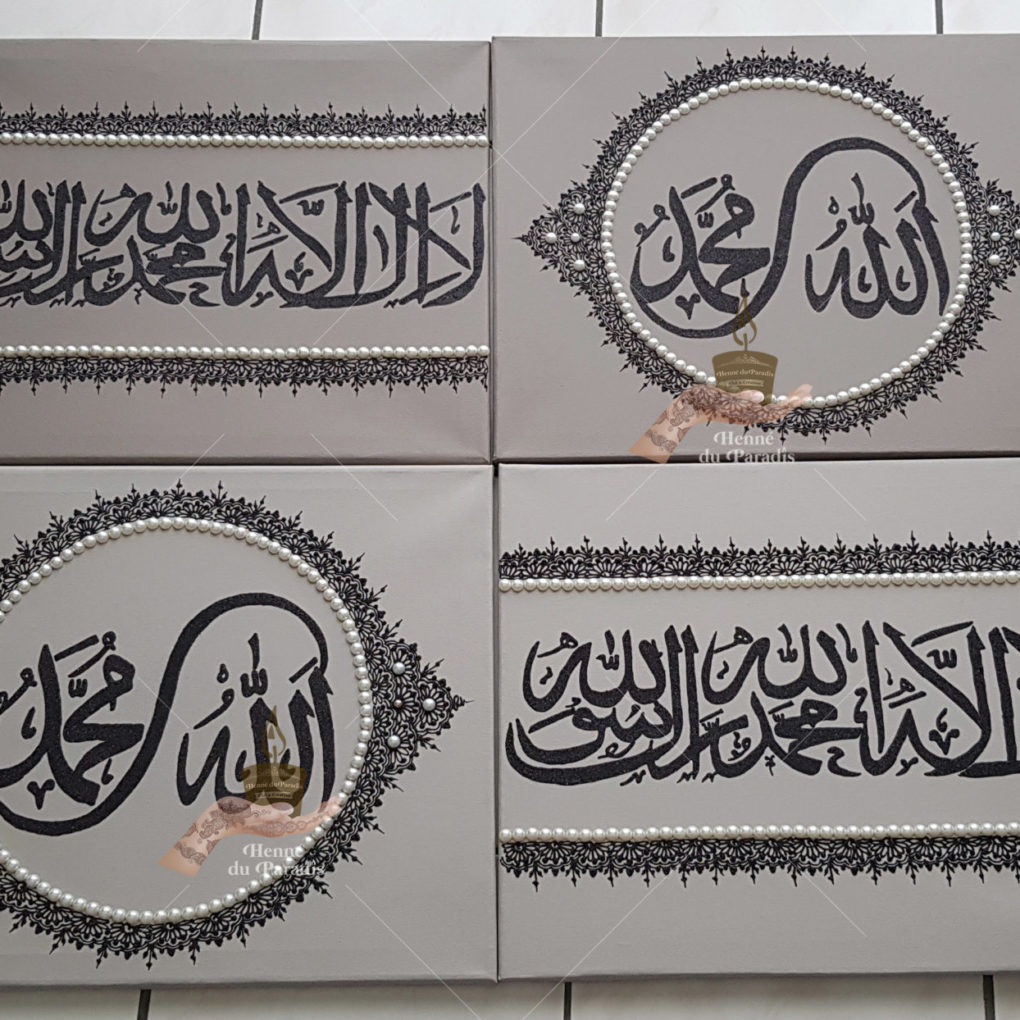 لا اله الا الله محمد رسول الله
الله محمد
Henné du Paradis
Henné
du Paradis
الله محمد
Henné du Paradis
Henné
du Paradis
الا الله محمد رسول الله